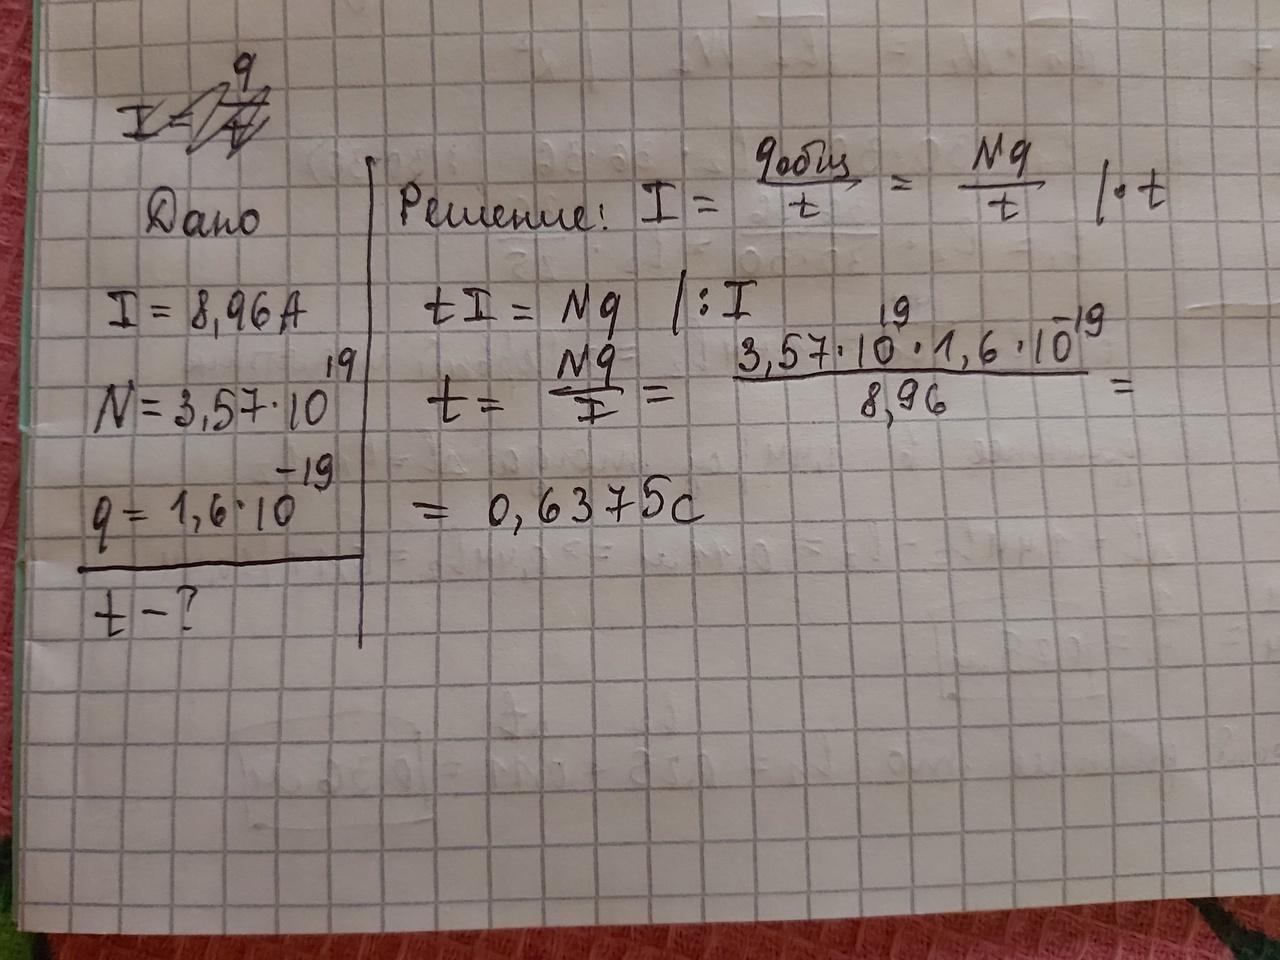 I = q/t
Дано
I = 8,96А
N = 3,57·10¹⁹
q = 1,6·10⁻¹⁹
t - ?
Решение: I = qобщ/t = Nq/t |·t
tI = Nq |:I
t = Nq/I = 3,57·10¹⁹·1,6·10⁻¹⁹/8,96 =
= 0,6375с